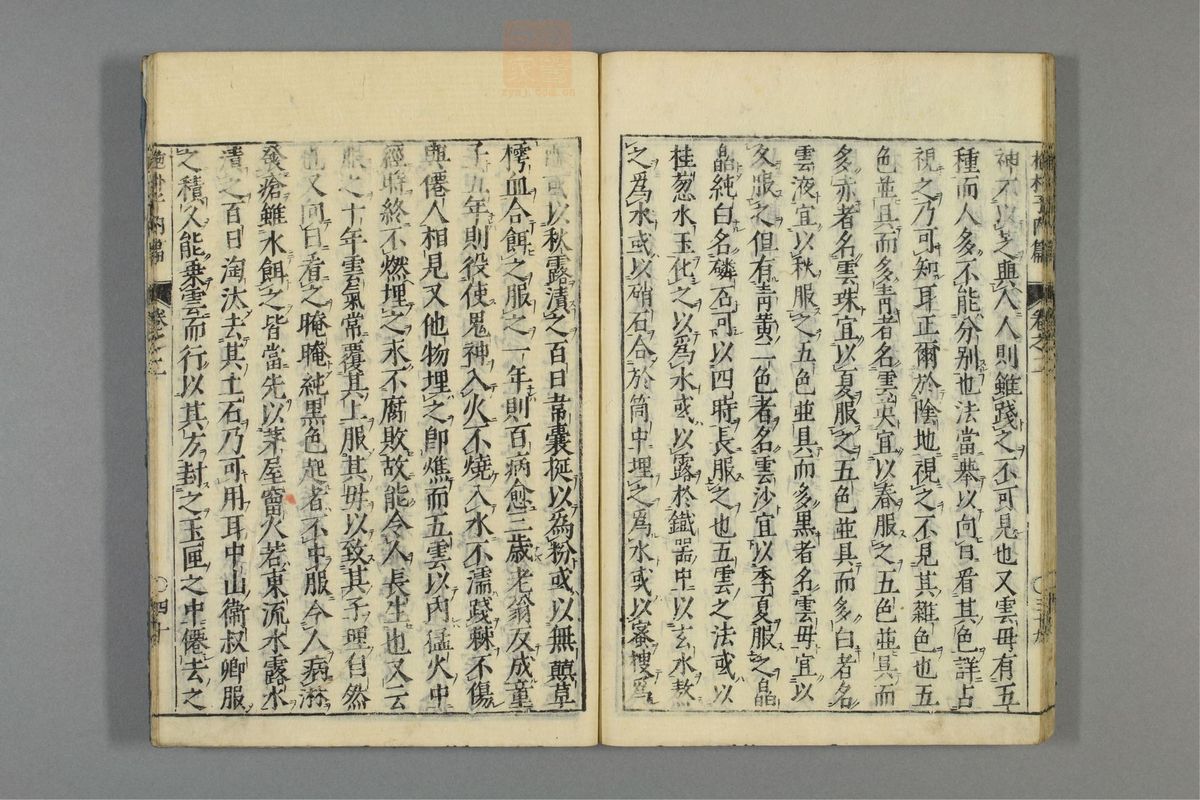 神不以芝與人人則雖踐之不可見也又雲母有五
種而人多不能分别也法當舉以向日看其色詳占
視之乃可知耳正爾於陰地視之不見其雜色也五
色並具而多青者名雲英宜以春服之五色並具而
多赤者名雲珠宜以夏服之五色並具而多白者名
雲液宜以秋服之五色並具而多黑者名雲母宜以
冬服之但有青黄二色者名雲沙宜以季夏服之晶
晶純白名磷石可以四時長服之也五雲之法或以
桂葱水玉化之以為水或以露於鐵器中以玄水熬
之為水或以硝石合於筒中埋之為水或以蜜搜為
酪或以秋露漬之百日韋囊挻以為粉或以無蓃草
樗血合餌之服之一年則百病愈三歲老翁反成童
子五年則役使鬼神入火不燒入水不濡踐棘不傷
與僊人相見又他物埋之即燋而五雲以内猛火中
經時終不燃埋之永不腐敗故能令人長生也又云
服之十年雲氣常覆其上服其母以致其子理自然
也又向日看之晻晻純黑色起者不中服令人病淋
發瘡雖水餌之皆當先以茅屋霤水若東流水露水
漬之百日淘汰去其土石乃可用耳中山衛叔卿服
之積久能乗雲而行以其方封之玉匣之中僊去之
抱朴子内篇
卷之二
抱朴子内篇
卷之二
四十